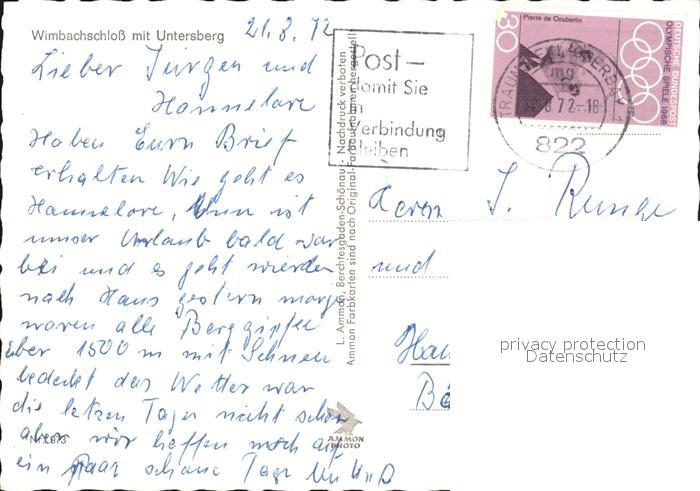 Wimbachschloß mit Untersberg
21.8.72
Lieber Jürgen und
Hannelore
Haben Eurn Brief
erhalten Wie geht es
Hannelore, Nun ist
unser Urlaub bald vor
bei und es geht wieder
nach Haus gestern morgen
waren alle Berggipfel
über 1500 m mit Schnee
bedeckt das Wetter war
die letzen Tage nicht schön
aber wir hoffen noch auf
ein paar schöne Tage
Nr.
L. Ammon, Berchtesgaden-Schönau - Nachdruck verboten
Ammon Farbkarten sind nach Original-Farbaufnahmen hergestellt
AMMON
PHOTO
Post –
damit Sie
in
Verbindung
bleiben
Pierre de Coubertin
30
DEUTSCHE BUNDESPOST
OLYMPISCHE SPIELE 1968
8 72-18
822
Herrn J. Runge
und
Han
privacy protection
Datenschutz